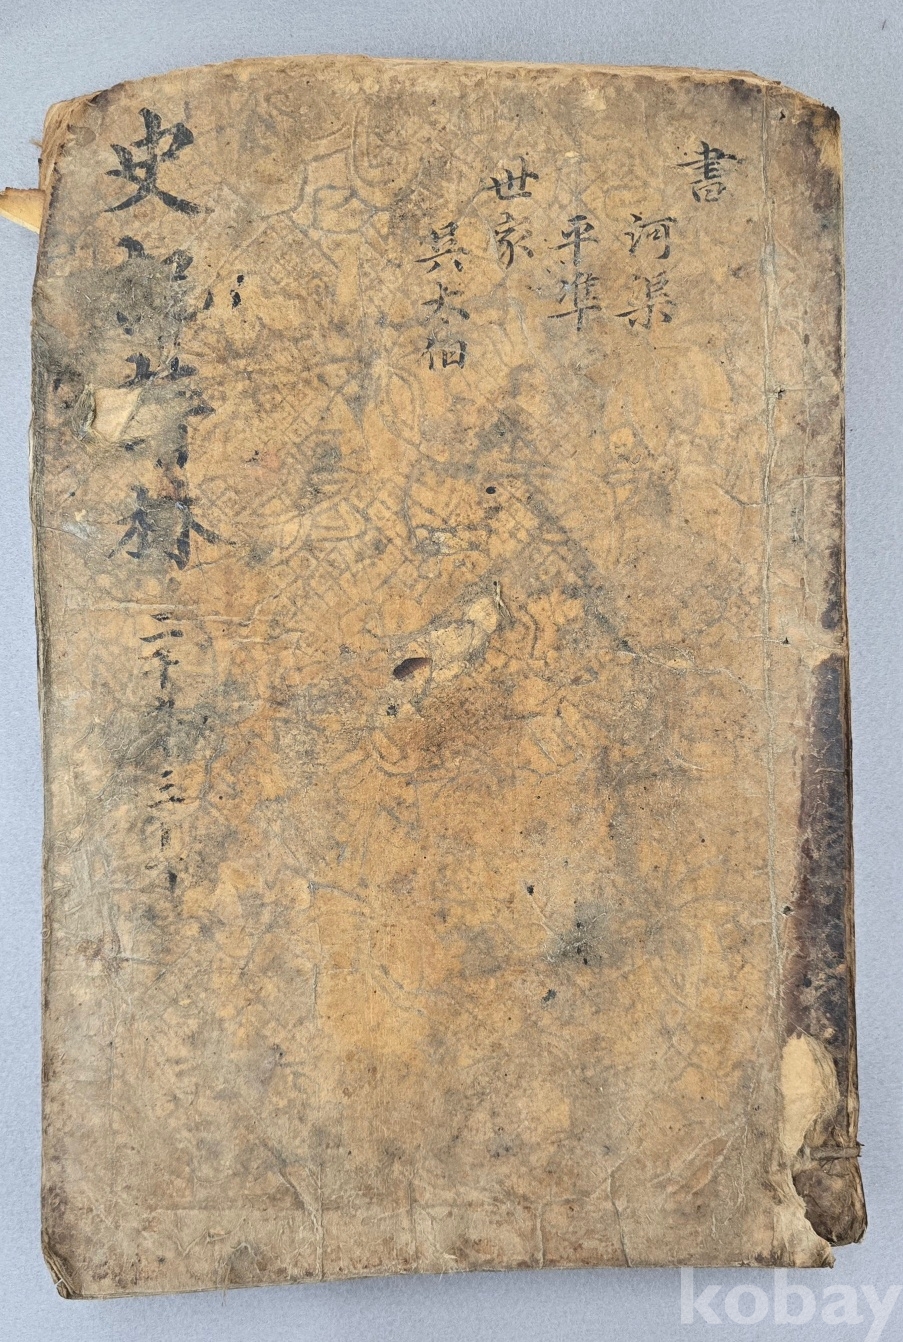 書
河渠
平準
世家
吳太伯
史記評林 二十九 三十
kobay